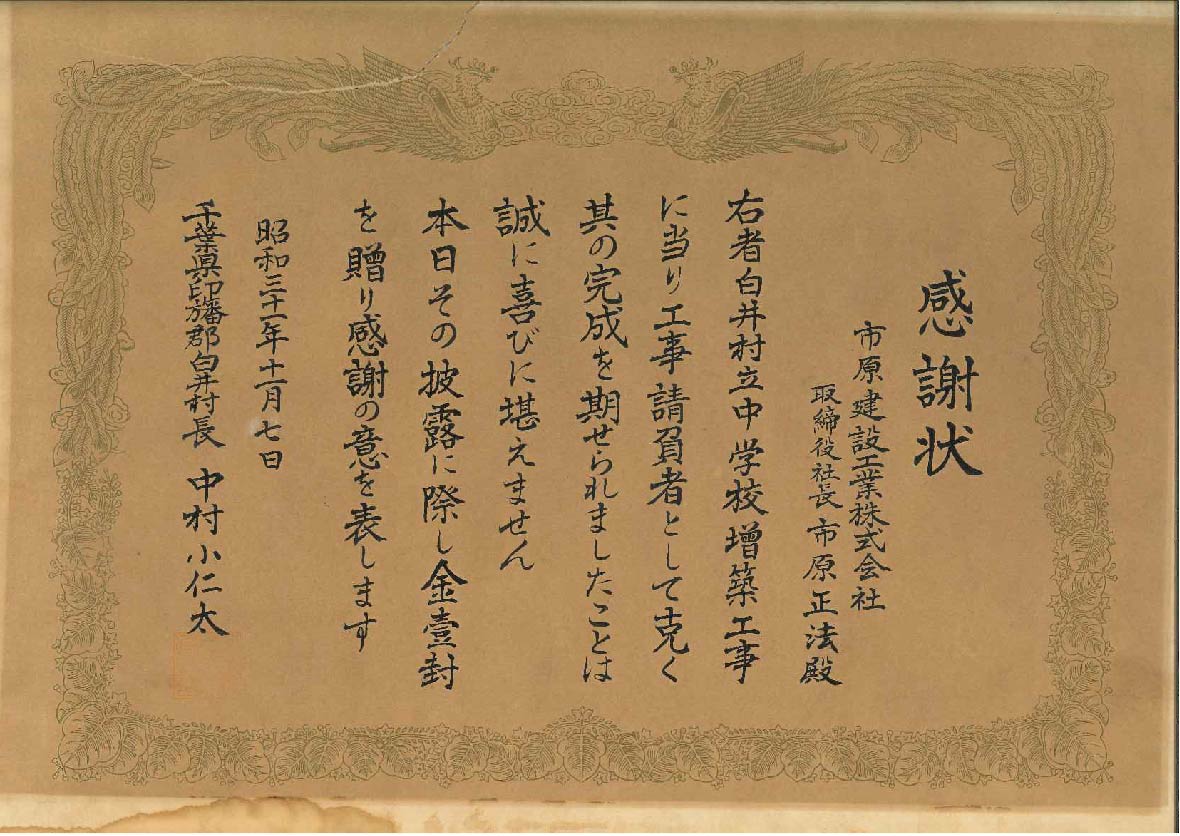 感謝状
市原建設工業株式会社
取締役社長市原正法殿
右者白井村立中学校増築工事
に当り工事請負者として克く
其の完成を期せられましたことは
誠に喜びに堪えません
本日その披露に際し金壹封
を贈り感謝の意を表します
昭和三十一年十一月七日
千葉県印旛郡白井村長 中村小仁太